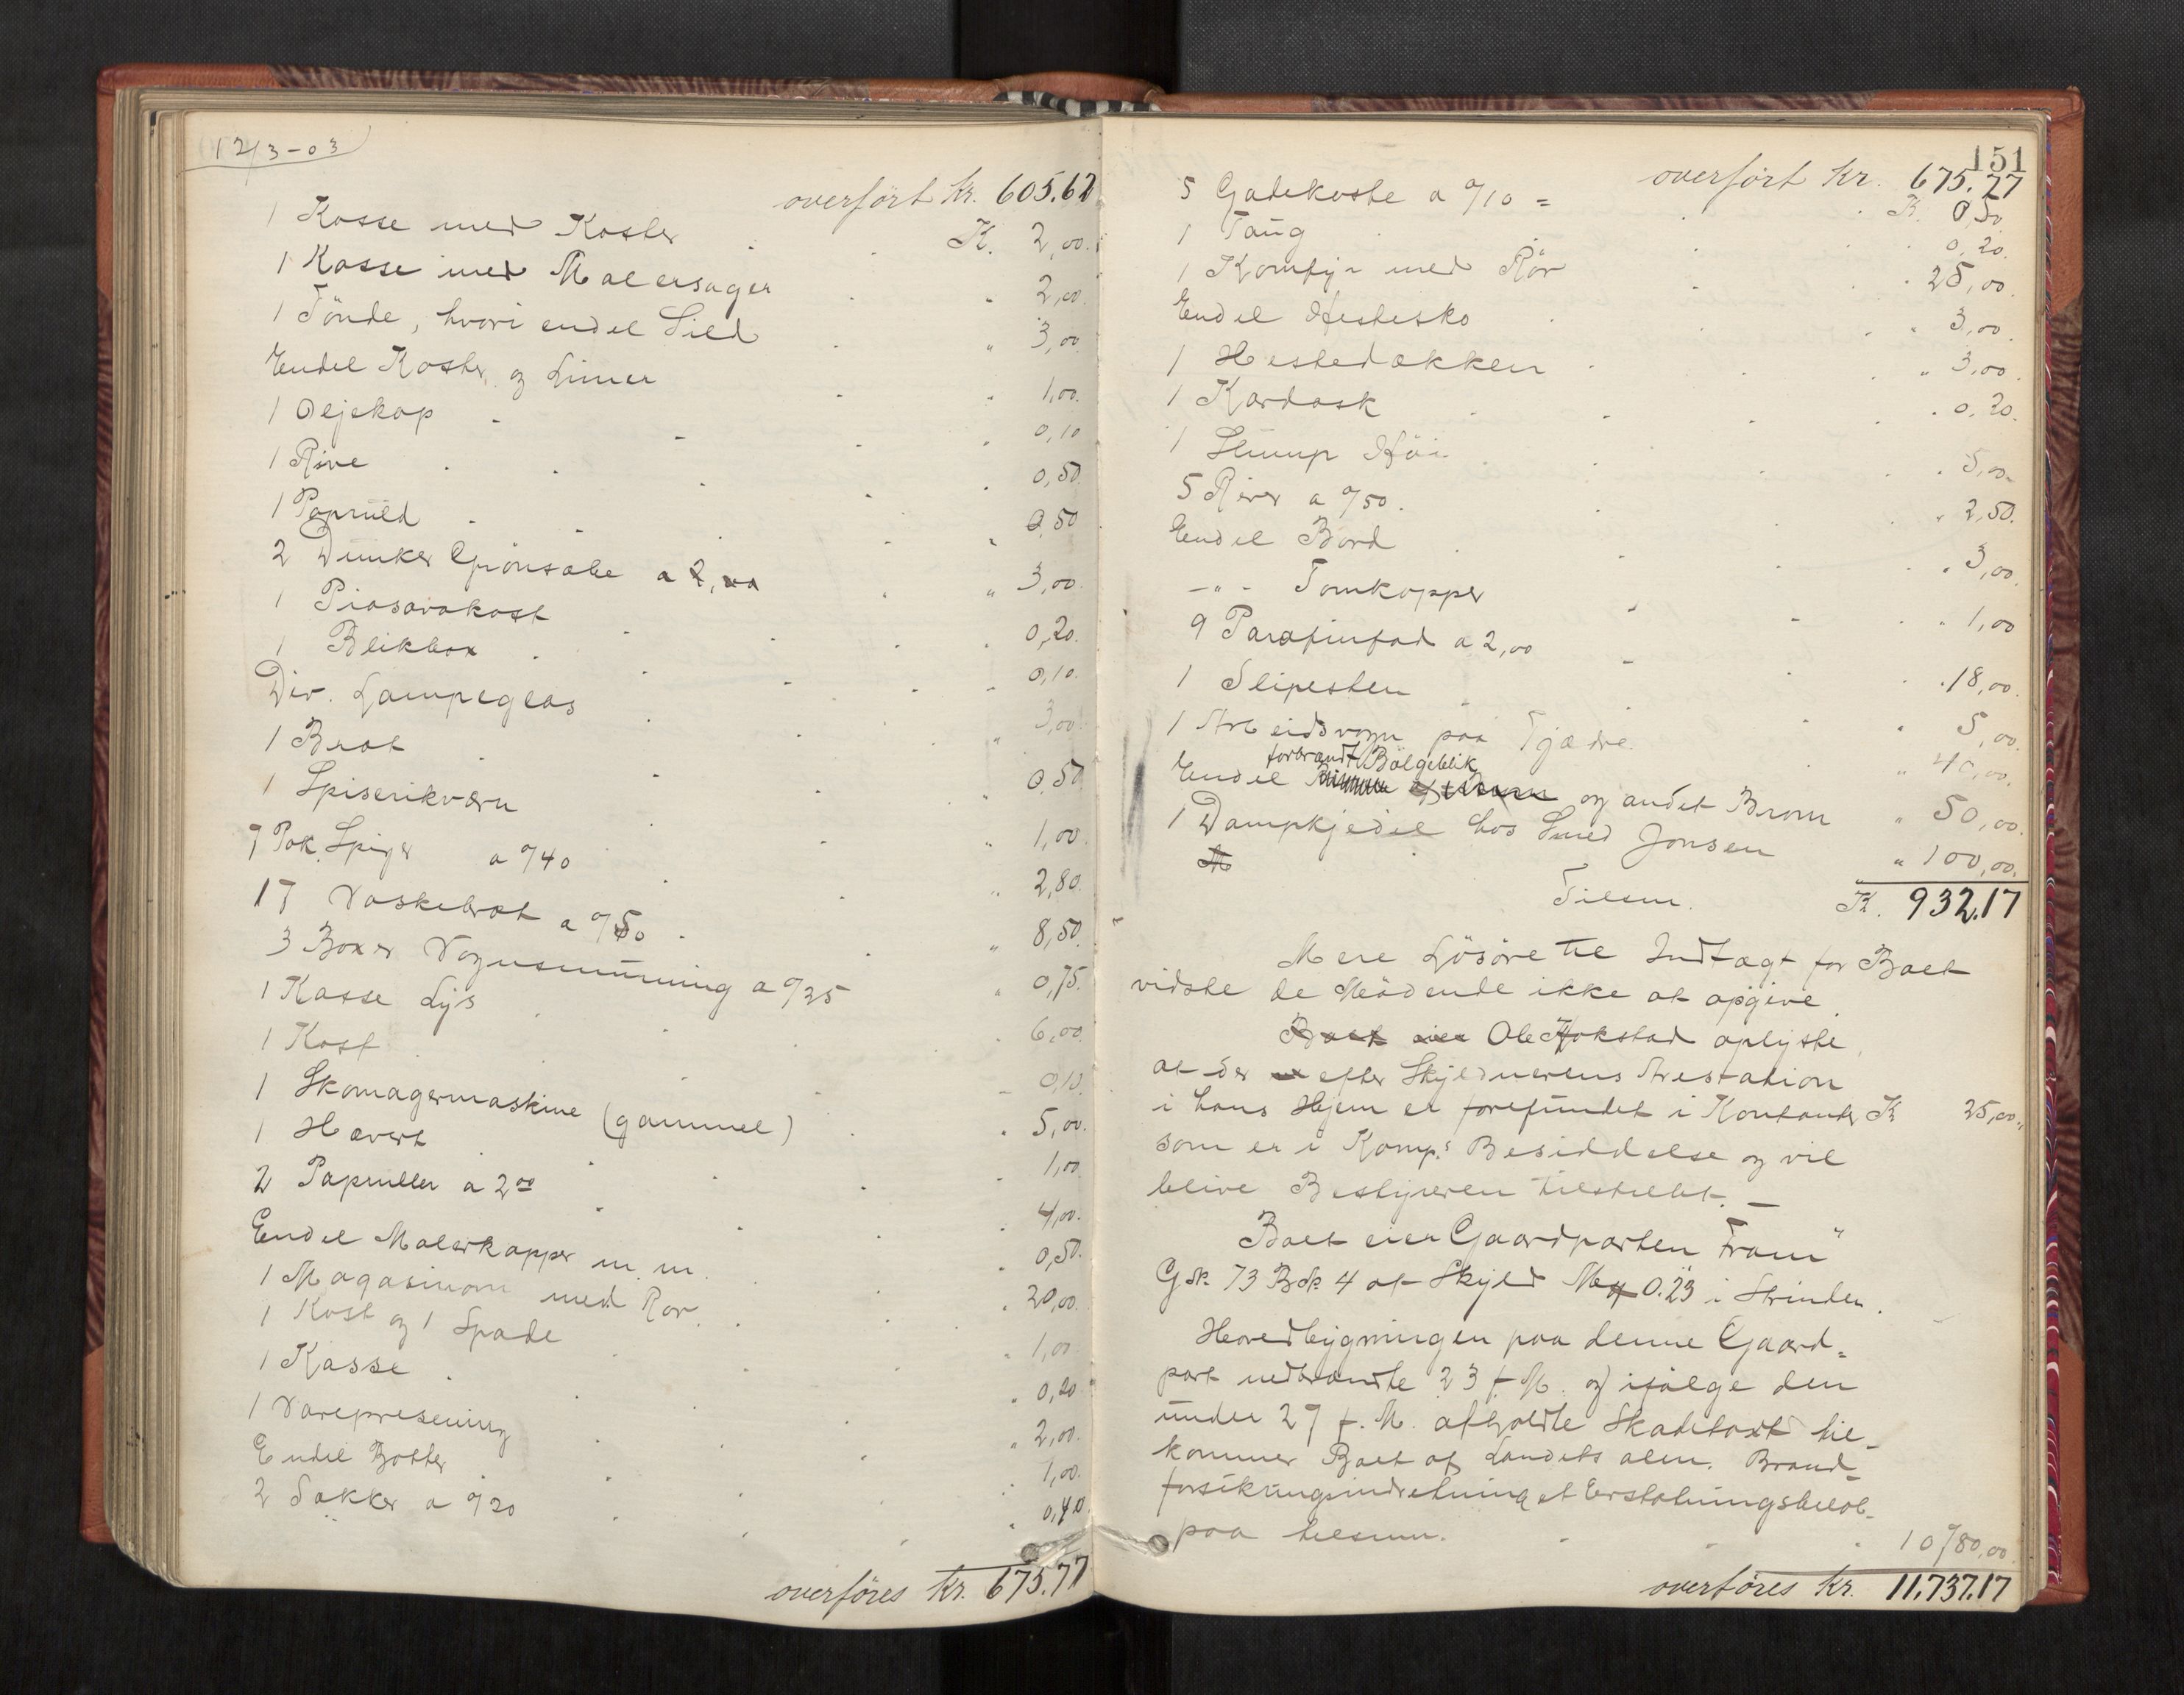 12/3-03
overført kr. 605.62
1 Kasse med Koster K. 2,00.
1 Kasse med Malersager " 2,00.
1 Tønde, hvori endel Sild " 3,00
Endel Koster og Limer " 1,00.
1 Oljekop " 0,10
1 Rive " 0,50
1 Paprüld " 0,50
2 Dunker Grønsæbe a 2,00 " 3,00
1 Piasavakost " 0,20.
1 Blikbox " 0,10.
Div. Lampeglas " 3,00
1 Bræt " 0,50
1 Spiserikværn " 1,00
7 Pak. Spiger a 0/40 " 2,80.
17 Vaskebræt a 0/50 " 8,50.
3 Boxer Vognsmurning a 0/25 " 0,75.
1 Kasse Lys " 6,00.
1 Kost " 0,10.
1 Skomagermaskine (gammel) " 5,00.
1 Hævert " 1,00
2 Papruller a 2 00 " 4,00.
Endel Malerkopper m. m. " 0,50.
1 Magasinovn med Rør. " 20,00.
1 Kost og 1 Spade " 1,00
1 Kasse " 0,20
1 Varepresening " 2,00.
Endel Bøtter " 1,00.
2 Sækker a 0/20 " 0,40
overføres kr. 675.77
151
overført kr. 675.77
5 Gadekoste a 0/10 = K. 0,50
1 Taug " 0,20.
1 Komfyr med Rør " 25,00.
Endel Hestesko " 3,00.
1 Hestedækken " 3,00.
1 Kardask " 0,20.
1 Slump Høi " 5,00
5 River a 0/50. " 2,50.
Endel Bord " 3,00.
-"- Tomkopper " 1,00
9 Parafinfad a 2,00 " 18,00.
1 Slipesten " 5,00.
1 Arbeidsvogn paa Fjædre " 40,00.
forbrændt Bølgeblik
Endel og andet Brom " 50,00.
1 Dampkjedel hos Smed Jonsen " 100,00.
Tilsm. K. 932.17
Mere Løsøre til Indtægt for Boet
vidste de Mødende ikke at opgive.
Boet eier Ole Hokstad oplyste
at der efter Skyldnerens Arrestation
i hans Hjem er forefundet i Kontanter K 25,00"
som er i Komp.s Besiddelse og vil
blive Bestyreren tilstillet. —
Boet eier Gaardparten "Fram"
G№ 73 B№ 4 af Skyld Mk 0.23 i Strinden.
Hovedbygningen paa denne Gaard=
part nedbrændte 23 f. M. og ifølge den
under 27 f. M. afholdte Skadetaxt til-
kommer Boet af Landets alm. Brand=
forsikringsindretning et Erstatningsbeløb
paa tilsmm. " 10780,00
overføres kr. 11.737.17